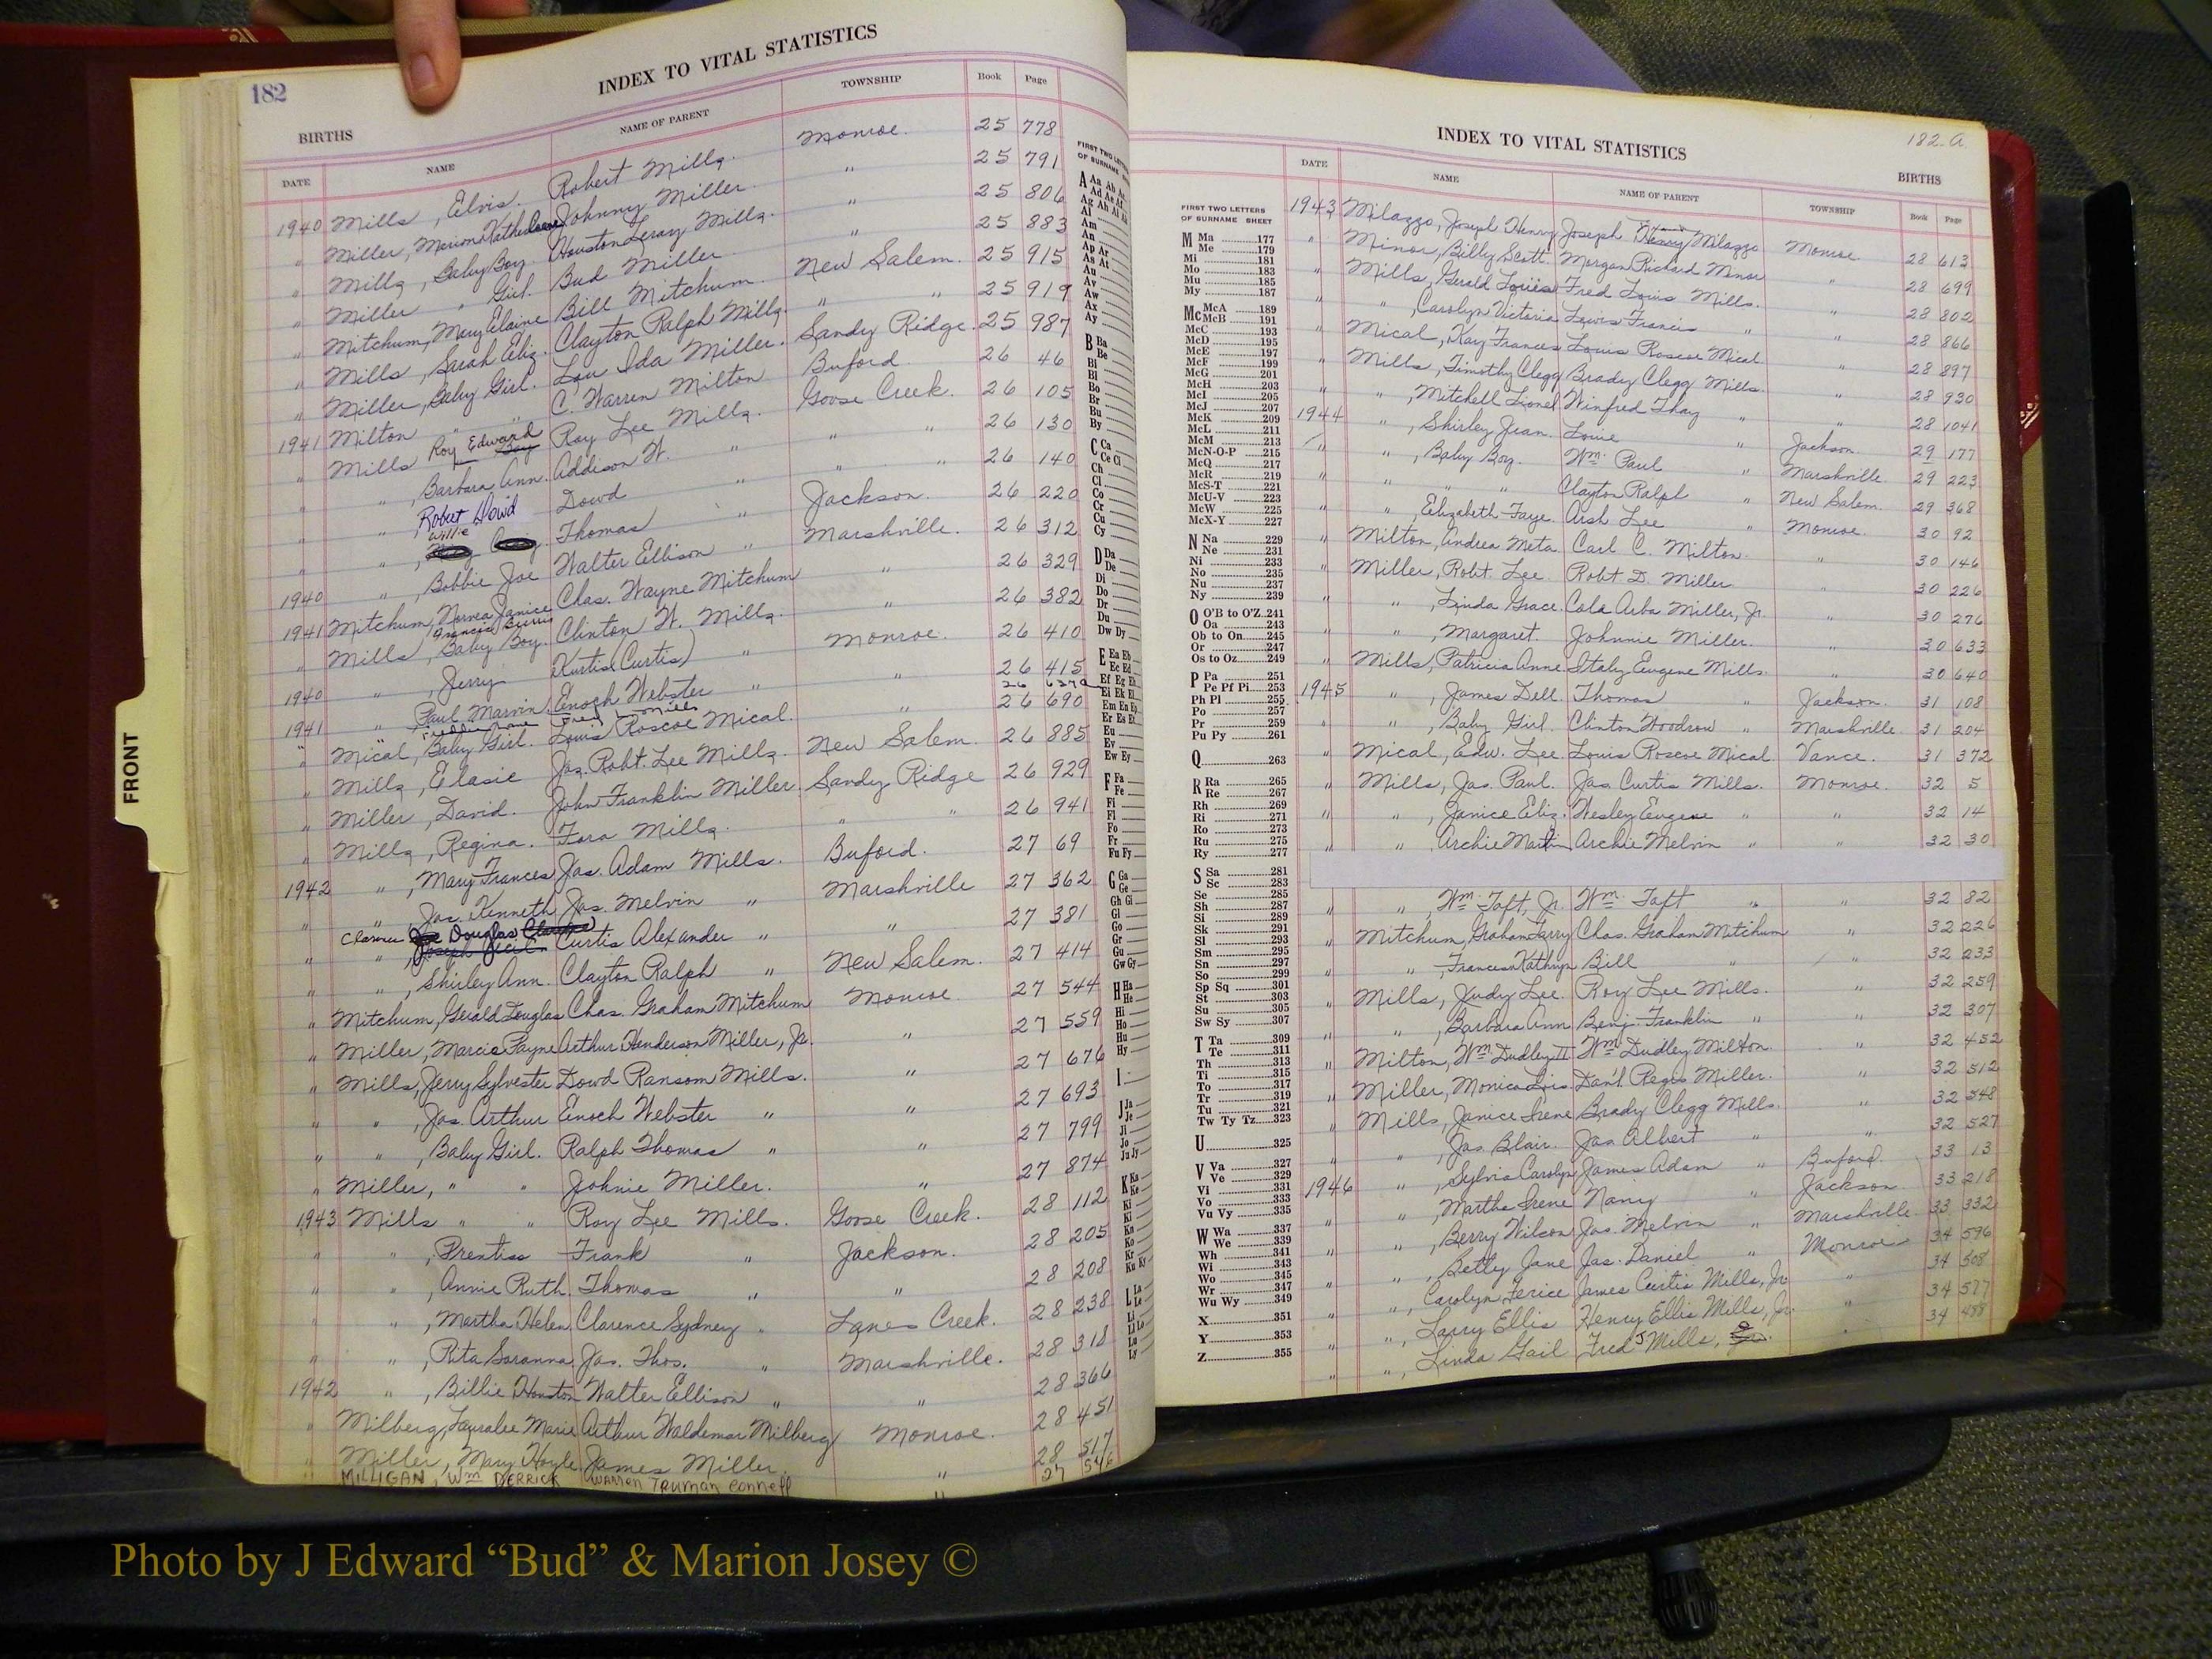 182
INDEX TO VITAL STATISTICS
BIRTHS
DATE NAME NAME OF PARENT TOWNSHIP Book Page
1940 Mills, Elvis. Robert Mills. Monroe. 25 778
" Miller, Johnny Miller. " 25 791
" Mills, Baby Boy. Houston Leroy Mills. " 25 806
" Miller " Girl. Bud Miller " 25 883
" Mitchum, Mary Elaine Bill Mitchum. New Salem. 25 915
" Mills, Sarah Eliz. Clayton Ralph Mills. " " 25 919
" Miller, Baby Girl. Lou Ida Miller. Sandy Ridge. 25 987
1941 Milton " " C. Warren Milton Buford 26 46
" Mills Roy Edward Roy Lee Mills. Goose Creek. 26 105
" " , Barbara Ann. Addison W. " " " 26 130
" " , Robert Dowd Dowd " " " 26 140
" " , Willie Thomas " Jackson. 26 220
1940 " , Bobbie Joe Walter Ellison " Marshville. 26 312
1941 Mitchum, Janice Chas. Wayne Mitchum " 26 329
" Mills, Baby Boy. Clinton W. Mills. " 26 382
1940 " , Jerry Kurtis (Curtis) " Monroe. 26 410
1941 " Paul Marvin. Enoch Webster " " 26 415
" Mical, Baby Girl. Louis Roscoe Mical. " 26 690
" Mills, Elasie Jas. Robt. Lee Mills. New Salem. 26 885
" Miller, David. John Franklin Miller. Sandy Ridge 26 929
" Mills, Regina. Fara Mills. " " 26 941
1942 " , Mary Frances Jas. Adam Mills. Buford. 27 69
" " , Jas. Kenneth Jas. Melvin " Marshville 27 362
" " , Clarence Douglas Curtis Alexander " " 27 381
" " , Shirley Ann. Clayton Ralph " New Salem. 27 414
" Mitchum, Gerald Douglas Chas. Graham Mitchum Monroe. 27 544
" Miller, Marcia Payne Arthur Henderson Miller, Jr. " 27 559
" Mills, Jerry Sylvester Dowd Ransom Mills. " 27 676
" " , Jas. Arthur Enoch Webster " " 27 693
" " , Baby Girl. Ralph Thomas " " 27 799
" Miller, " " Johnie Miller. " 27 874
1943 Mills " " Roy Lee Mills. Goose Creek. 28 112
" " , Prentiss Frank " Jackson. 28 205
" " , Annie Ruth. Thomas " " 28 208
" " , Martha Helen. Clarence Sydney " Lanes Creek. 28 238
" " , Rita Saranna. Jas. Thos. " Marshville. 28 318
1942 " , Billie Houston Walter Ellison " " 28 366
" Milberg, Lauralee Marie Arthur Waldemar Milberg Monroe. 28 451
" Miller, Mary Hoyle James Miller. " 28 517
MILLIGAN, Wm DERRICK WARREN TRUMAN Connell " 27
FRONT
FIRST TWO LETTERS OF SURNAME
182-a
INDEX TO VITAL STATISTICS
BIRTHS
DATE NAME NAME OF PARENT TOWNSHIP Book Page
FIRST TWO LETTERS
OF SURNAME SHEET
M Ma 177
Me 179
Mi 181
Mo 183
Mu 185
My 187
Mc McA 189
McB 191
McC 193
McD 195
McE 197
McF 199
McG 201
McH 203
McI 205
McJ 207
McK 209
McL 211
McM 213
McN-O-P 215
McQ 217
McR 219
McS-T 221
McU-V 223
McW 225
McX-Y 227
N Na 229
Ne 231
Ni 233
No 235
Nu 237
Ny 239
O O'B to O'Z 241
Oa 243
Ob to On 245
Or 247
Os to Oz 249
P Pa 251
Pe Pf Pi 253
Ph Pl 255
Po 257
Pr 259
Pu Py 261
Q 263
R Ra 265
Re 267
Rh 269
Ri 271
Ro 273
Ru 275
Ry 277
S Sa 281
Sc 283
Se 285
Sh 287
Si 289
Sk 291
Sl 293
Sm 295
Sn 297
So 299
Sp Sq 301
St 303
Su 305
Sw Sy 307
T Ta 309
Te 311
Th 313
Ti 315
To 317
Tr 319
Tu 321
Tw Ty Tz 323
U 325
V Va 327
Ve 329
Vi 331
Vo 333
Vu Vy 335
W Wa 337
We 339
Wh 341
Wi 343
Wo 345
Wr 347
Wu Wy 349
X 351
Y 353
Z 355
1943 Milazzo, Joseph Henry Joseph Henry Milazzo Monroe 28 613
" Minor, Billy Scott. Morgan Richard Minor " 28 699
" Mills, Gerald Louise Fred Louis Mills. " 28 802
" " , Carolyn Victoria Lewis Francis " " 28 866
" Mical, Kay Frances Louis Roscoe Mical " 28 897
" Mills, Timothy Clegg Brady Clegg Mills. " 28 930
" " , Mitchell Lionel Winfred Thay " " 28 1041
1944 " , Shirley Jean. Louie " Jackson. 29 177
" " , Baby Boy. Wm. Paul " Marshville. 29 223
" " " " Clayton Ralph " New Salem. 29 368
" " , Elizabeth Faye. Arsh Lee " Monroe. 30 92
" Milton, Andrea Meta Carl C. Milton. " 30 146
" Miller, Robt. Lee. Robt D. Miller " 30 226
" " , Linda Grace. Cola Arba Miller, Jr. " 30 276
" " , Margaret. Johnnie Miller. " 30 633
" Mills, Patricia Anne Italy Eugene Mills. " 30 640
1945 " , James Dell. Thomas " Jackson. 31 108
" " , Baby Girl. Clinton Woodrow " Marshville. 31 204
" Mical, Edw. Lee Louis Roscoe Mical Vance. 31 372
" Mills, Jas. Paul. Jas. Curtis Mills. Monroe. 32 5
" " , Janice Eliz. Wesley Eugene " " 32 14
" " , Archie Martin Archie Melvin " " 32 30
" " , Wm. Taft, Jr. Wm. Taft " " 32 82
" Mitchum, Graham Larry Chas. Graham Mitchum " 32 226
" " , Frances Kathryn Bill " " 32 233
" Mills, Judy Lee. Roy Lee Mills. " 32 259
" " , Barbara Ann Benj. Franklin " " 32 307
" Milton, Wm. Dudley II Wm. Dudley Milton. " 32 452
" Miller, Monica Lois Dan'l Regis Miller. " 32 512
" Mills, Janice Irene Brady Clegg Mills. " 32 548
" " , Jas. Blair. Jas. Albert " " 32 527
" " , Sylvia Carolyn James Adam " Buford. 33 13
1946 " , Martha Irene Nancy " Jackson 33 218
" " , Berry Wilson Jas. Melvin " Marshville. 33 332
" " , Betty Jane Jas. Daniel " Monroe 34 596
" " , Carolyn Ferice James Curtis Mills, Jr. " 34 508
" " , Larry Ellis Henry Ellis Mills, Jr. " 34 577
" " , Linda Gail Fred J Mills, " 34
Photo by J Edward “Bud” & Marion Josey ©